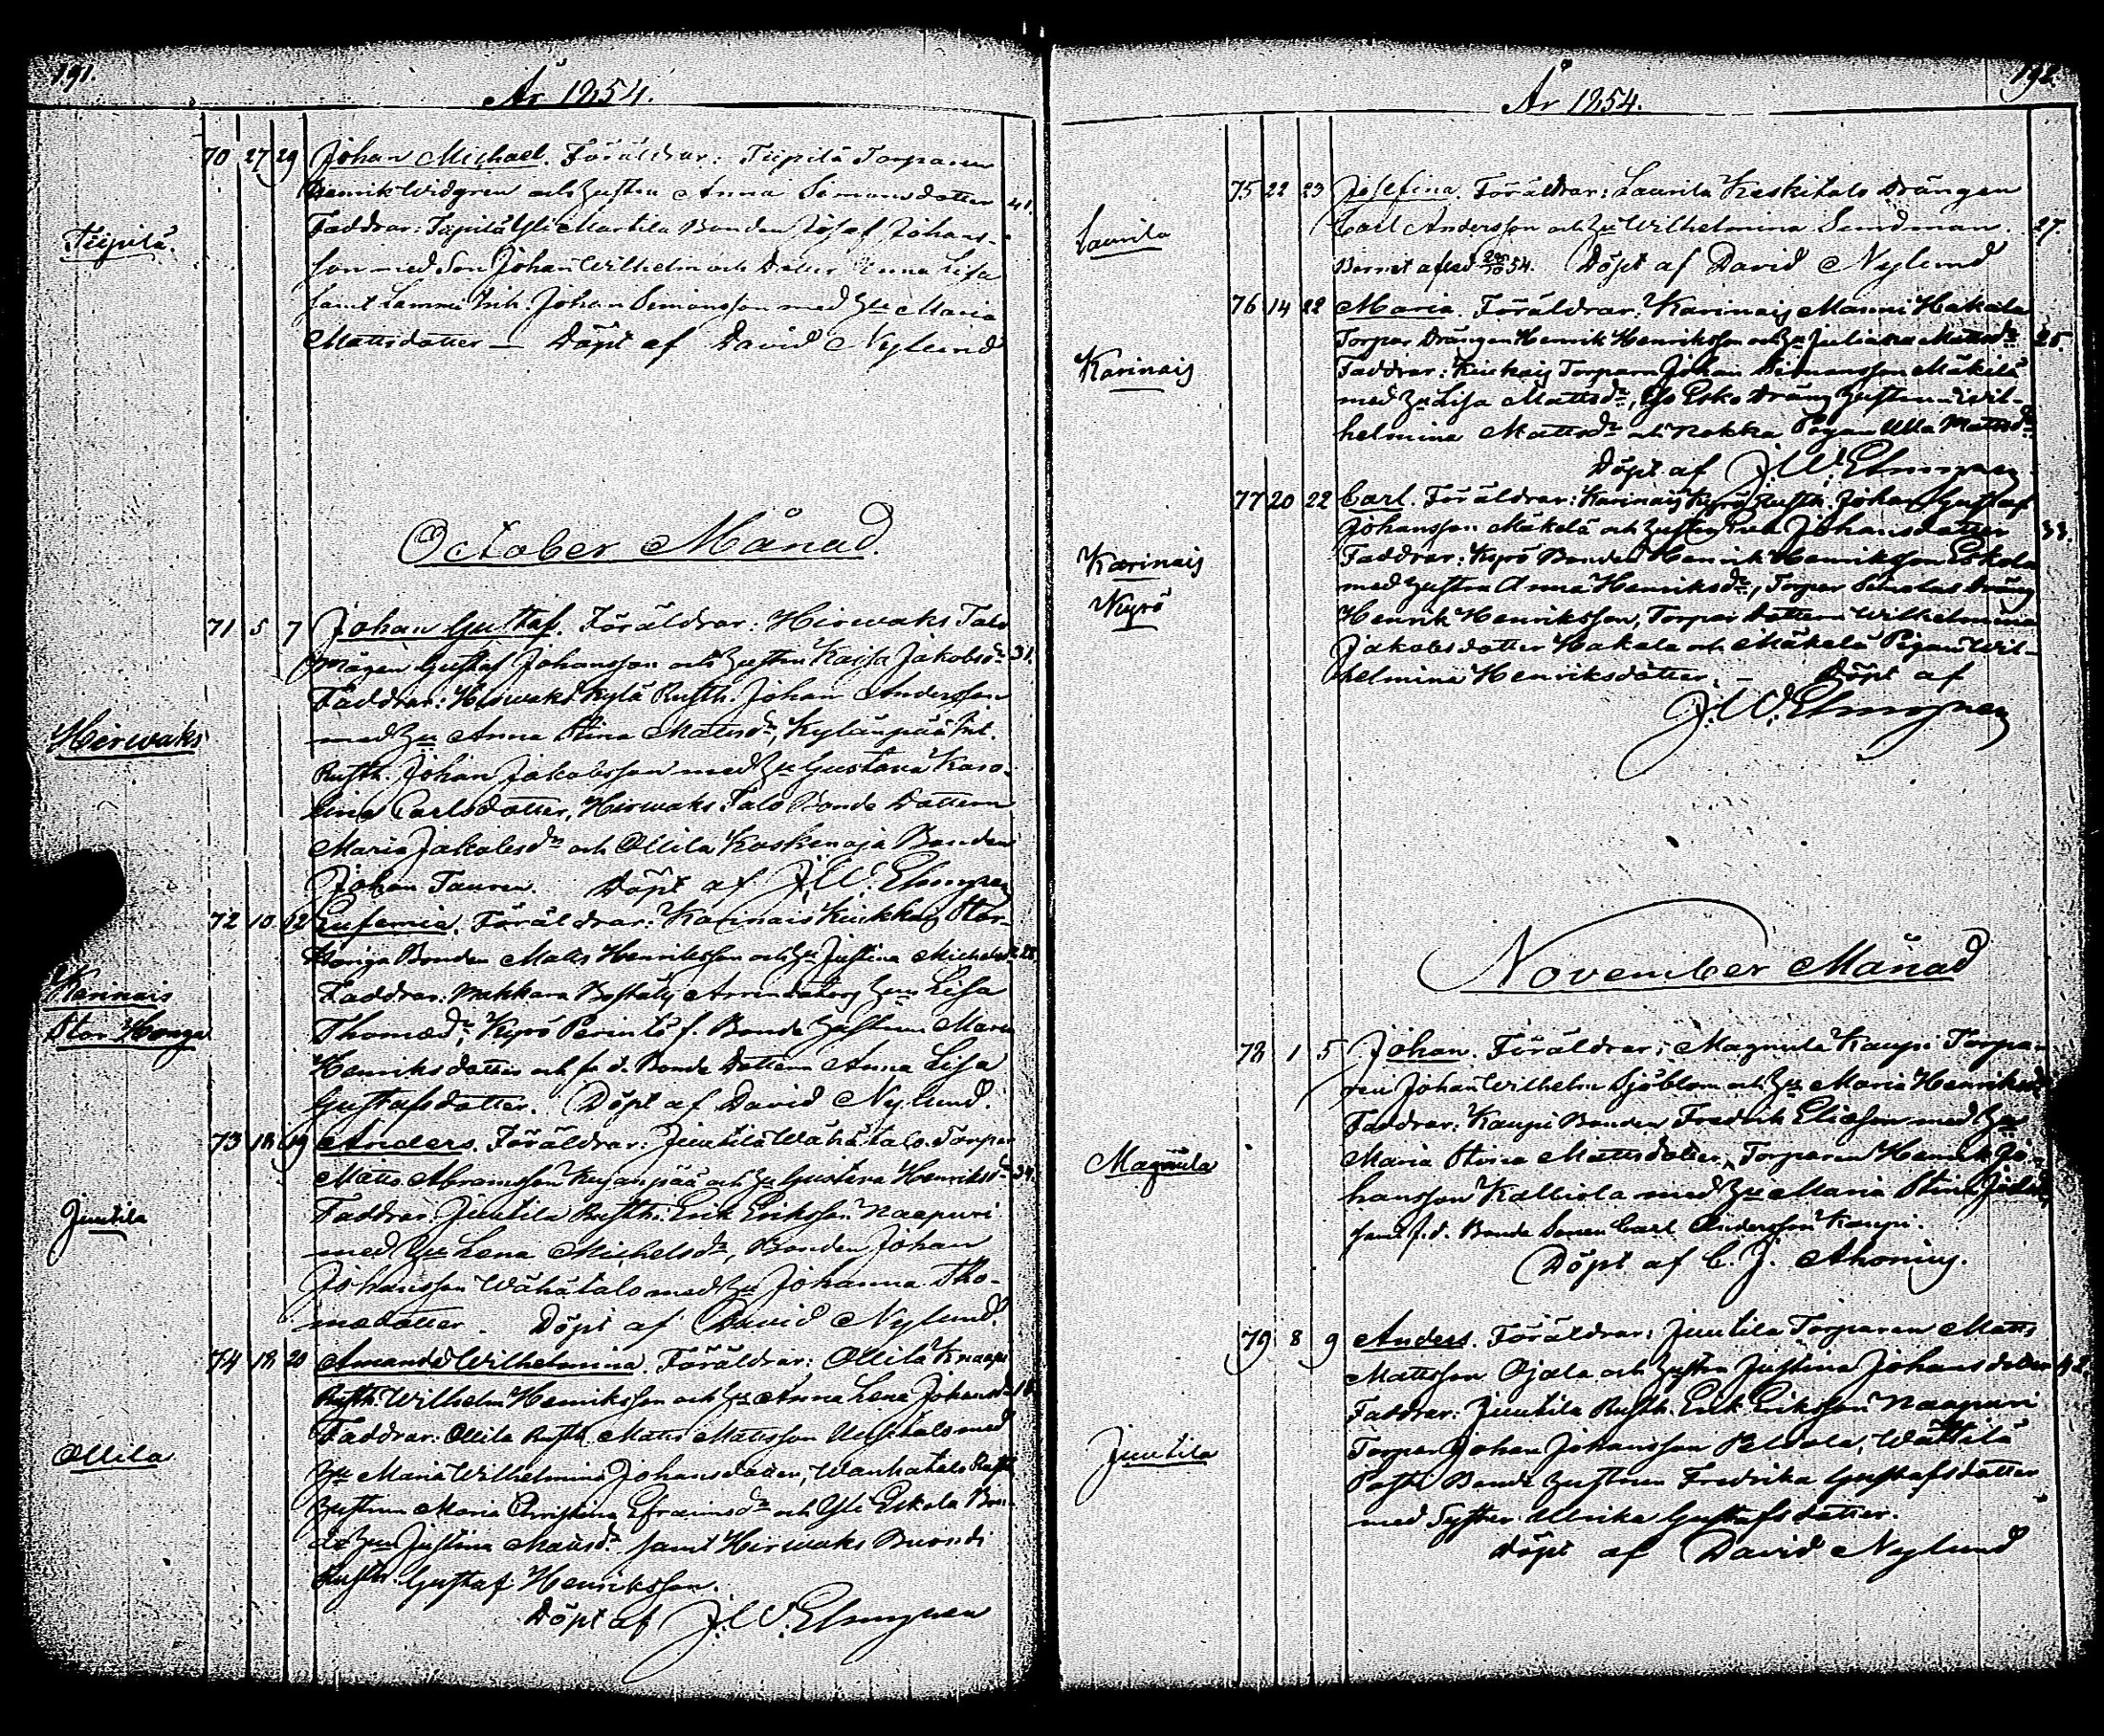 191.
År 1854.
70 27 29 Johan Michael. Föräldrar: Tiipilä Torparen
Henrik Widgren och hustru Anna Simonsdotter 41.
Tiipilä.
Faddrar: Tiipilä Yli Martila Bonden Josef Johans-
son med Son Johan Wilhelm och Dotter Anna Lisa
samt Lammi Inh. Johan Simonsson med Hu Maria
Mattsdotter — Döpt af David Nylund
October Månad.
71 5 7 Johan Gustaf. Föräldrar: Hirwaks Talo
Mågen Gustaf Johansson och hustru Kaisa Jakobsdr 31.
Faddrar: Hirwaks Kylä Rusth. Johan Andersson
Hirwaks
med Hu Anna Stina Mattsdr, Kylänpää Int.
Rusth. Johan Jakobsson med Hu Gustava Karo-
lina Carlsdotter, Hirwaks Talo Bonde Dottern
Maria Jakobsdr och Ollila Koskenoja Bonden
Johan Tauren. Döpt af J. W. Elmgren
72 10 12 Eufemia. Föräldrar: Karinais Kiukkais Stor-
Honga Bonden Matts Henriksson och Hu Justina Michelsdr 28.
Karinais
Stor Honga
Faddrar: Makkara Boställs Arrendators Hun Lisa
Thomædr, Kyrö Perintö f. Bonde Hustrun Maria
Henriksdotter och f. d. Bonde Dottern Anna Lisa
Gustafsdotter. Döpt af David Nylund.
73 18 19 Anders. Föräldrar: Juutila Wähätalo Torpar
Matts Abramsson Kujanpää och Hu Gustava Henriksdr 34.
Juutila
Faddrar: Juutila Rusth. Erik Eriksson Naapuri
med Hu Lena Michelsdr, Bonden Johan
Johansson Wähätalo med Hu Johanna Tho-
mædotter. Döpt af David Nylund.
74 18 20 Amanda Wilhelmina. Föräldrar: Ollila Knaapi
Rusth. Wilhelm Henriksson och Hu Anna Lena Johansdr 18.
Faddrar: Ollila Rusth. Matts Mattsson Uusitalo med
Ollila
Hu Maria Wilhelmina Johansdotter, Wanhatalo Rusth.
Hustrun Maria Christina Efraimsdr och Yli Eskola Bon-
de Hun Justina Mattsdr samt Hirwaks Buondi
Rusth. Gustaf Henriksson.
Döpt af J. W. Elmgren
192.
År 1854.
75 22 23 Josefina. Föräldrar: Laurila Keskitalo Drängen
Laurila
Carl Andersson och Hu Wilhelmina Sundman. 27.
Barnet afled 54. Döpt af David Nylund
76 14 22 Maria. Föräldrar: Karinais Manni Hakala
Torpar Drängen Henrik Henriksson och Hu Juliana Mattsdr 25.
Karinais
Faddrar: Kiukais Torparn Johan Simonsson Mäkilä
med Hu Lisa Mattsdr, Esko Dräng Hustrun Wil-
helmina Mattsdr och Kokka Pigan Ulla Mattsdr
Döpt af J. W. Elmgren
77 20 22 Carl. Föräldrar: Karinais Kyrö Rusth. Johan Gustaf
Johansson Mäkelä och hustru Eva Johansdotter 33.
Karinais
Kyrö
Faddrar: Kyrö Bonden Henrik Henriksson Eskola
med hustru Anna Henriksdr, Torpar Dräng
Henrik Henriksson, Torpar Dottern Wilhelmina
Jakobsdotter Hakala och Mäkelä Pigan Wil-
helmina Henriksdotter. — Döpt af
J. W. Elmgren
November Månad
78 1 5 Johan. Föräldrar: Magnula Kaupi Torpa-
ren Johan Wilhelm Sjöblom och Hu Maria Henriksdr
Faddrar: Kaupi Bonden Fredrik Eliasson med Hu
Magnula
Maria Stina Mattsdotter, Torparen Henrik Jo-
hansson Kalliola med Hu Maria Stina
samt f. d. Bonde Sonen Carl Andersson Kaupi.
Döpt af C. J. Ahonius.
79 8 9 Anders. Föräldrar: Juutila Torparen Matts
Mattsson Ojala och hustru Justina Johansdotter 42.
Faddrar: Juutila Rusth. Erik Eriksson Naapuri
Juutila
Torparn Johan Johansson Peltola, Wättilä
Bonde Hustrun Fredrika Gustafsdotter
med Syster Ulrika Gustafsdotter.
Döpt af David Nylund